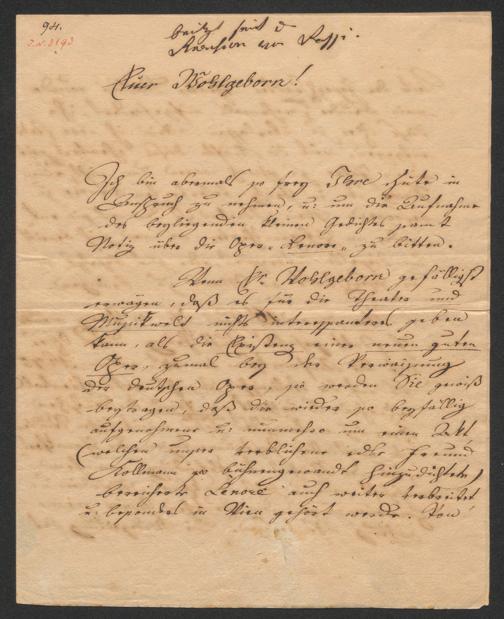 94.
I.N. 8193
besitzt seit d
Redaktion von Rossi.
Euer Wohlgeborn!
Ich bin abermals so frey Ihre Güte in
Anspruch zu nehmen, u: um die Aufnahme
des beyliegenden kleinen Gedichtes samt
Notiz über die Oper „Lenore„ zu bitten.
Wenn Er. Wohlgeborn gefälligst
erwägen, daß es für die Theater und
Musikwelt nichts interessanteres geben
kann, als die Existenz einer neuen guten
Oper, zumal bey der Verwaisung
der deutschen Oper, so werden Sie gewiß
beytragen, daß die wieder so beyfällig
aufgenommene u: nunmehro um einen Akt
(welchen unser verblichene edle Freund
Kollmann so bühnengewandt hinzudichtete)
bereicherte Lenore auch weiter verbreitet
u: besonders in Wien gehört werde. Von